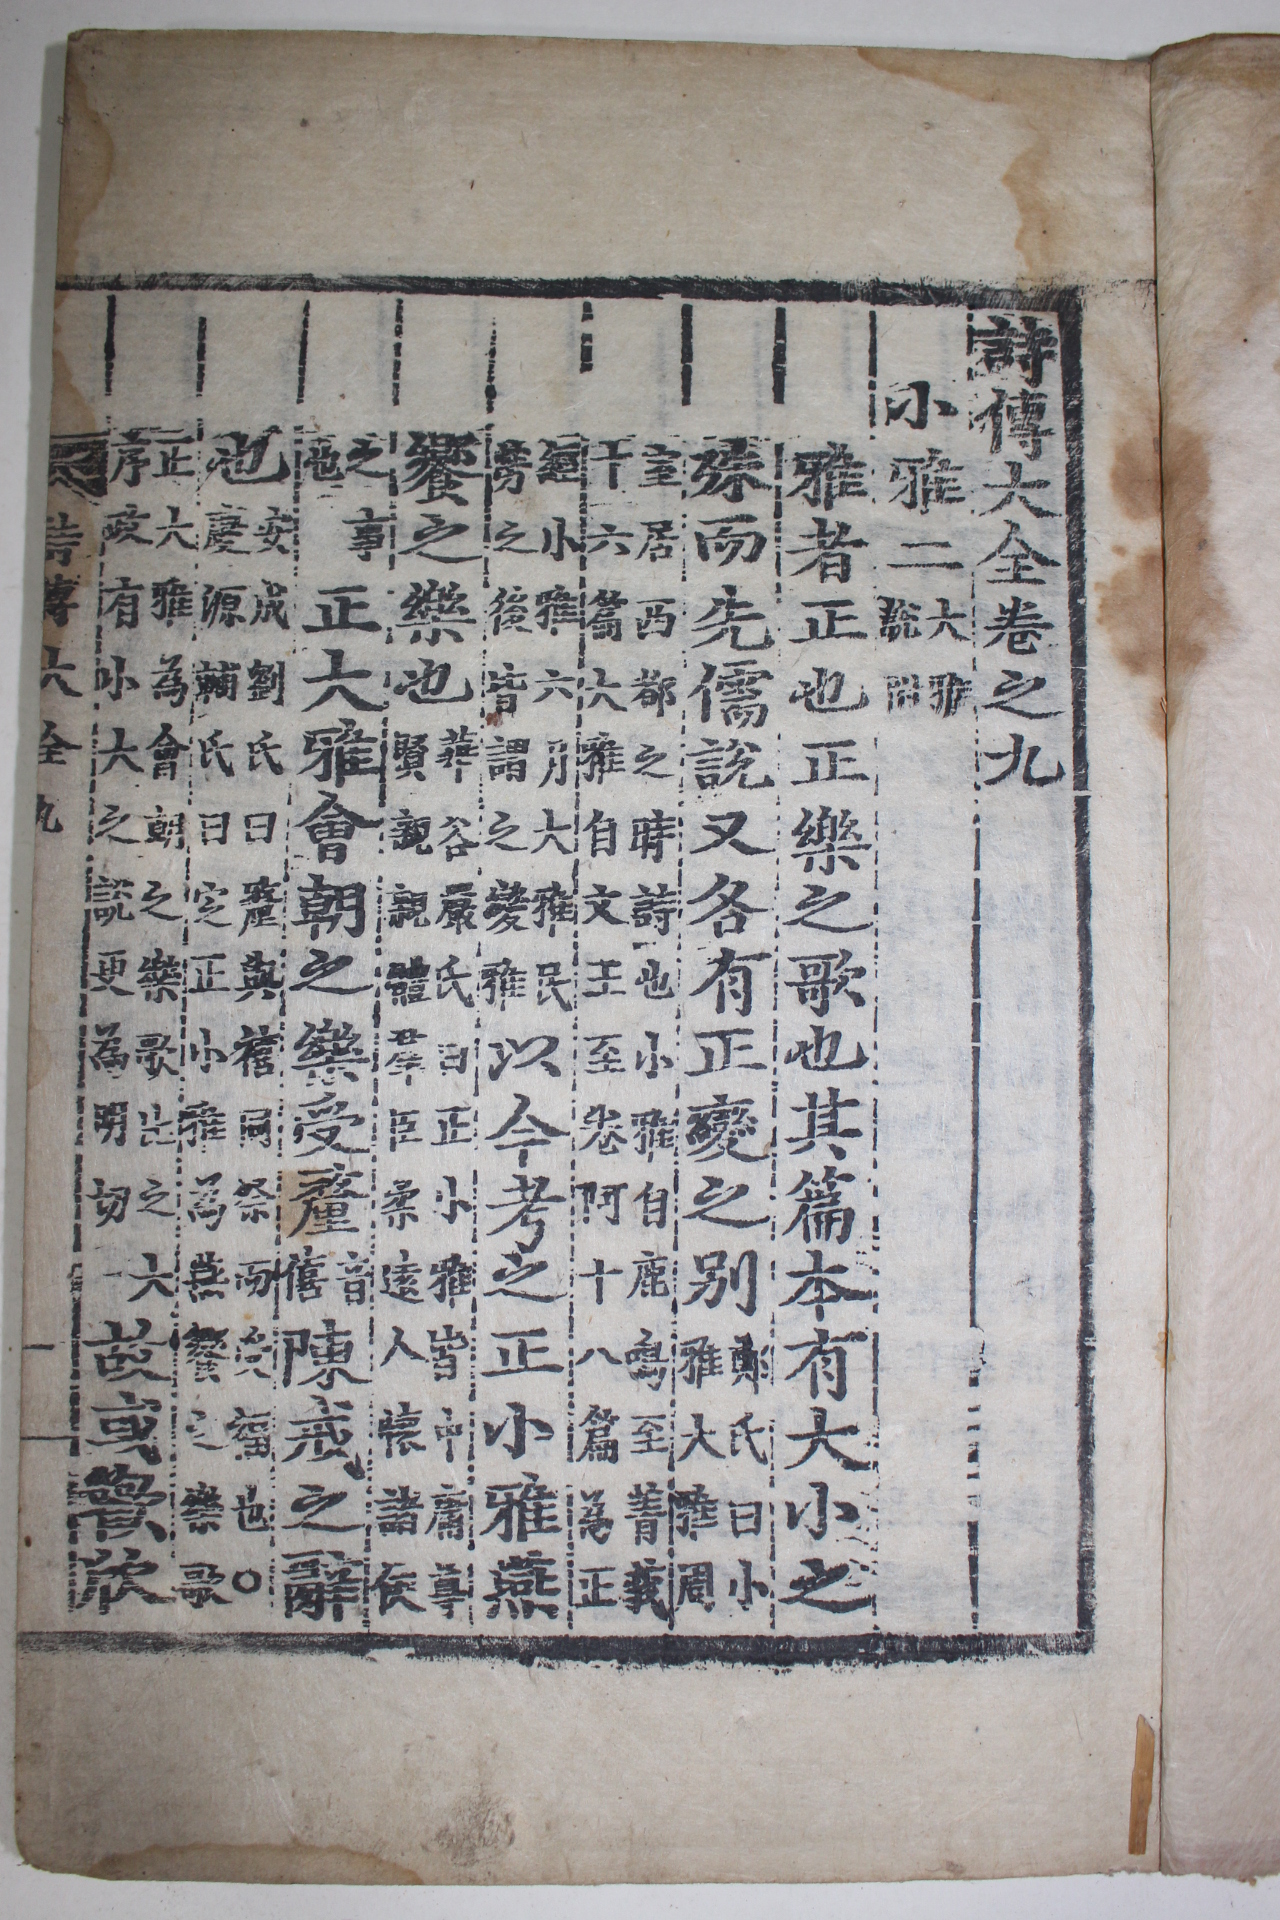 詩傳大全卷之九
小雅二大雅說附
雅者正也正樂之歌也其篇本有大小之
殊而先儒說又各有正變之别鄭氏曰小雅大雅周
室居西都之時詩也小雅自鹿鳴至菁莪十六篇大雅自文王至卷阿十八篇為正
經小雅六月大雅民勞之後皆謂之變雅以今考之正小雅燕
饗之樂也華谷嚴氏曰正小雅皆中庸尊賢親親體羣臣柔遠人懷諸侯
之事也正大雅會朝之樂受釐音僖陳戒之辭
也安成劉氏曰釐與禧同祭而受福也○慶源輔氏曰定正小雅為燕饗之樂歌
正大雅為會朝之樂歌比之大序政有小大之說更為明切故或歡欣
詩傳大全 九 一